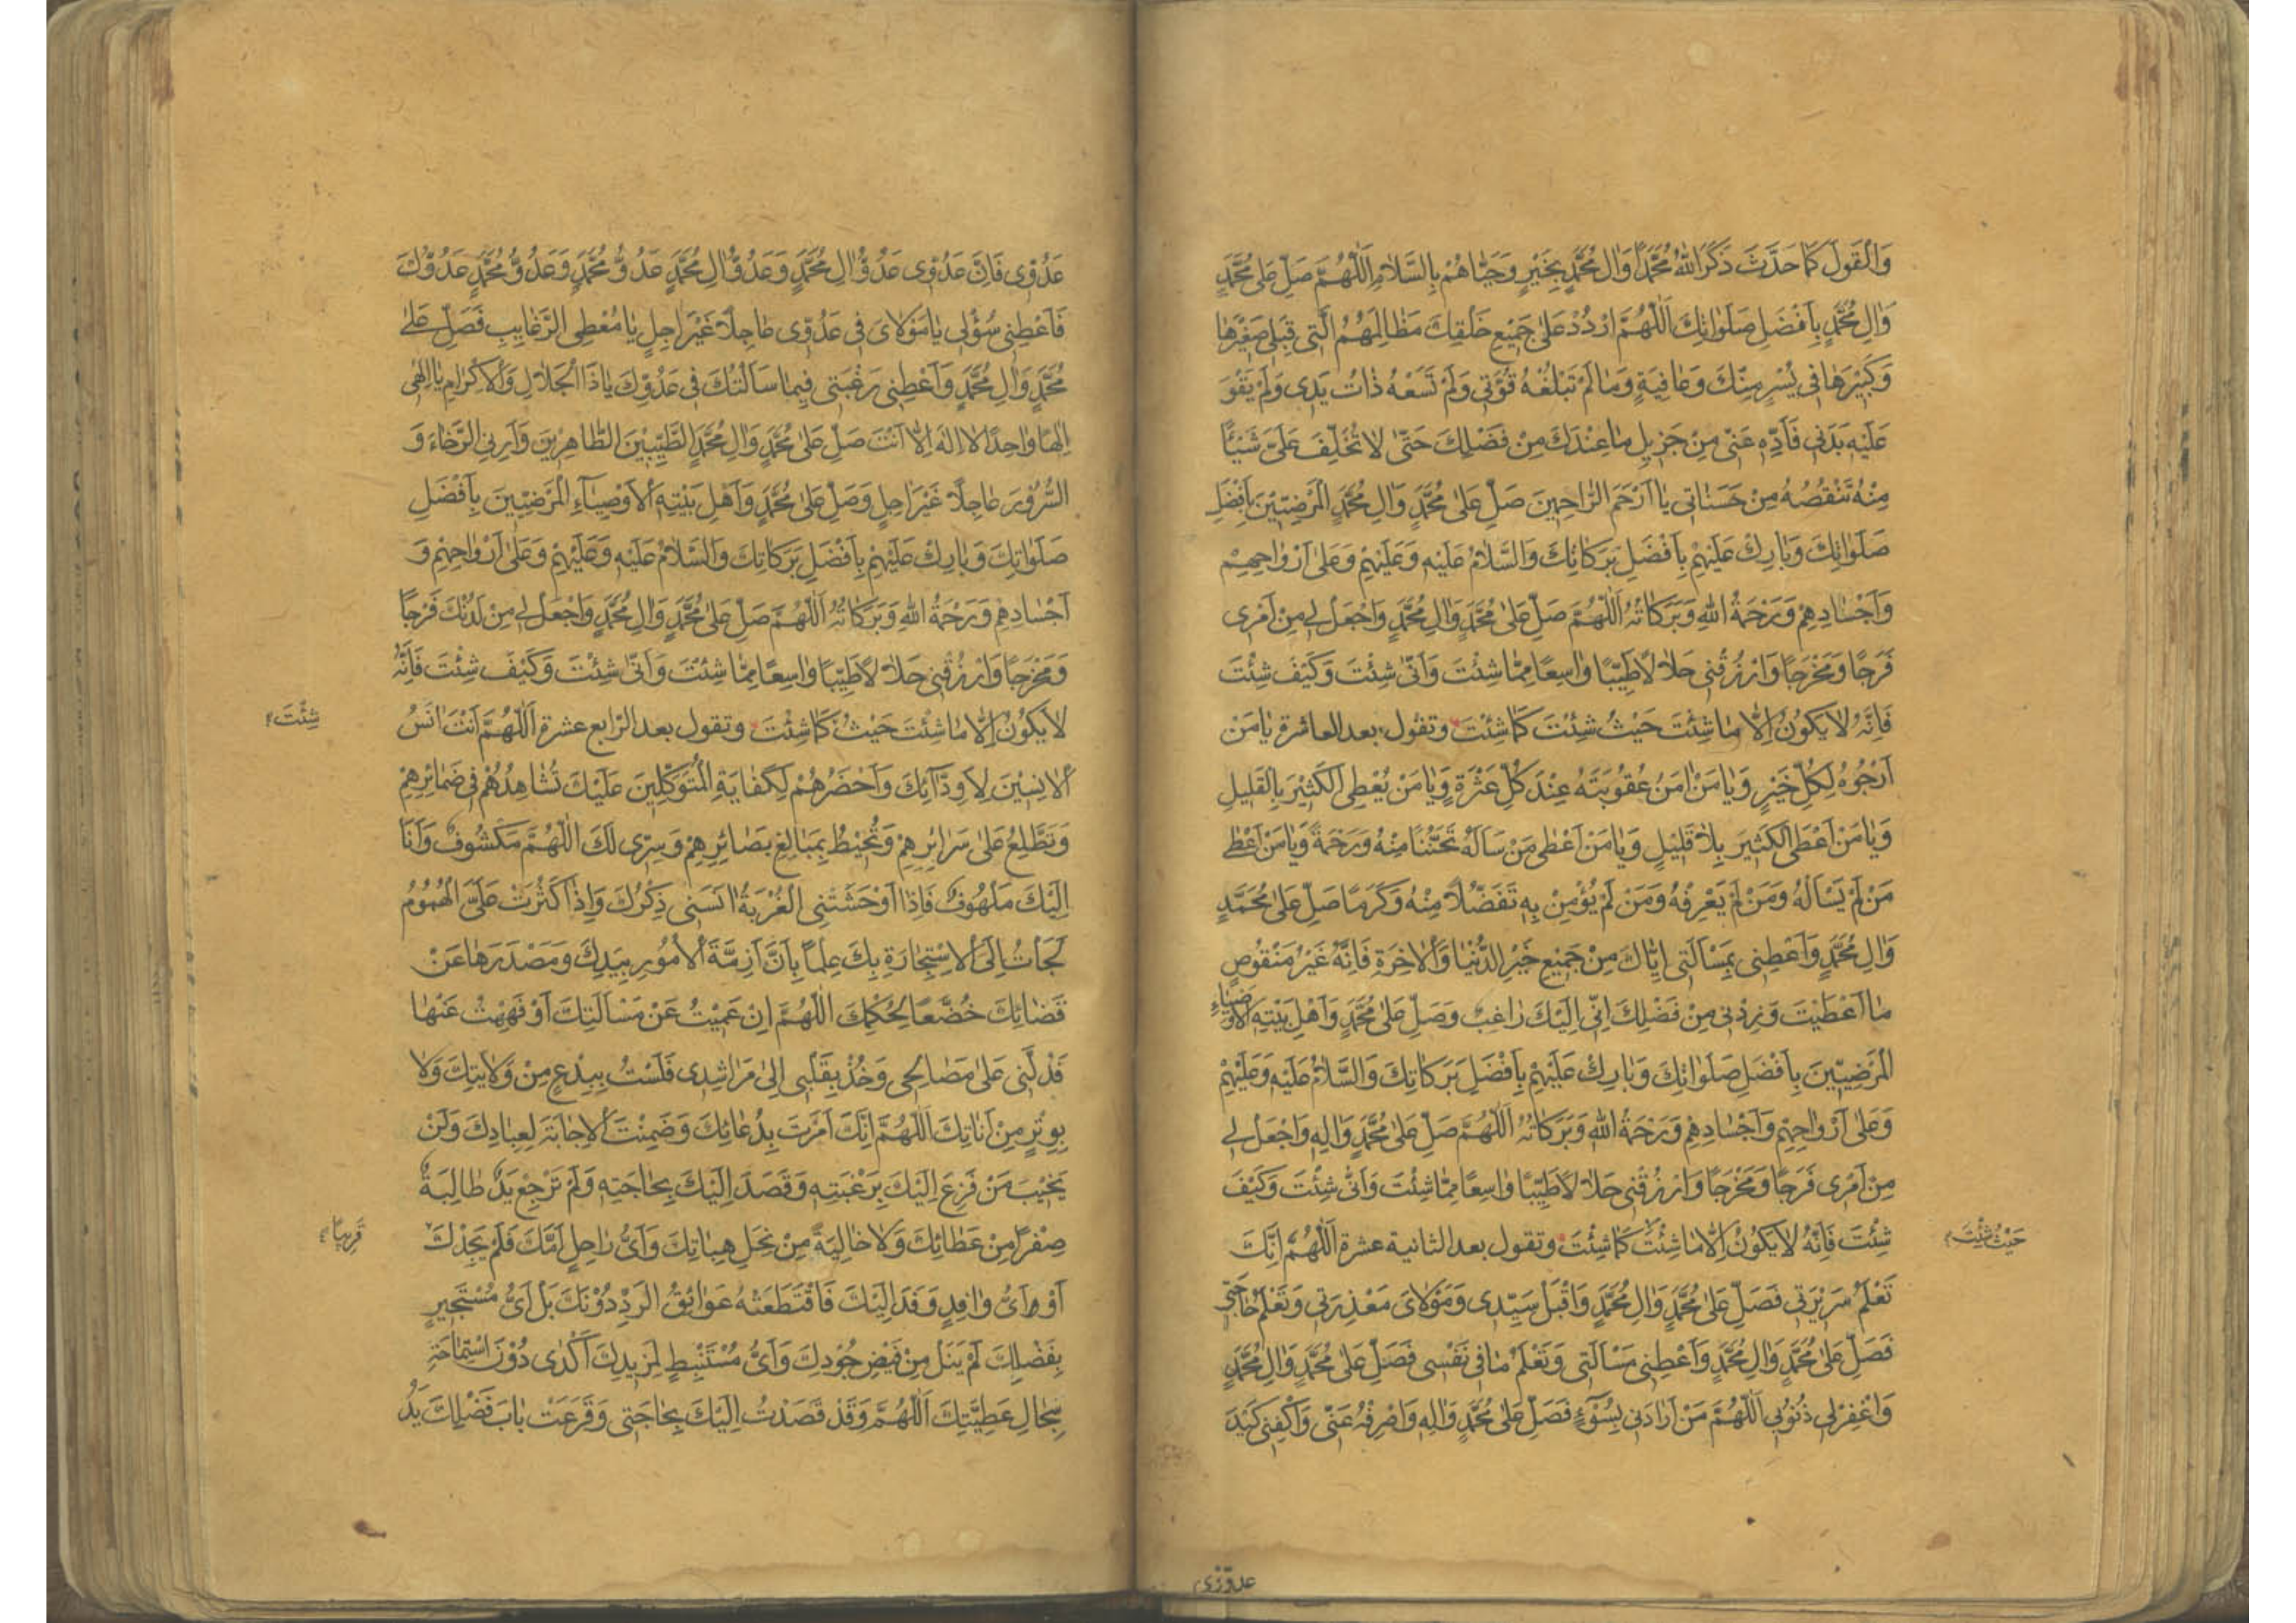 وَالْقَوْلَ كَمَا حَدَّثَ ذَكَرَ اللّٰهُ مُحَمَّدًا وَاٰلَ مُحَمَّدٍ بِخَيْرٍ وَحَيَّاهُمْ بِالسَّلَامِ اَللّٰهُمَّ صَلِّ عَلٰى مُحَمَّدٍ
وَاٰلِ مُحَمَّدٍ بِاَفْضَلِ صَلَوَاتِكَ اَللّٰهُمَّ ارْدُدْ عَلٰى جَمِيْعِ خَلْقِكَ مَظَالِمَهُمُ الَّتِي قِبَلِي صَغِيْرَهَا
وَكَبِيْرَهَا فِي يُسْرٍ مِنْكَ وَعَافِيَةٍ وَمَا لَمْ تَبْلُغْهُ قُوَّتِي وَلَمْ تَسَعْهُ ذَاتُ يَدِي وَلَمْ يَقْوَ
عَلَيْهِ بَدَنِي فَاَدِّهِ عَنِّي مِنْ جَزِيلِ مَا عِنْدَكَ مِنْ فَضْلِكَ حَتّٰى لَا تُخَلِّفَ عَلَيَّ شَيْئًا
مِنْهُ تَنْقُصُهُ مِنْ حَسَنَاتِي يَا اَرْحَمَ الرَّاحِمِينَ صَلِّ عَلٰى مُحَمَّدٍ وَاٰلِ مُحَمَّدٍ الْمَرْضِيِّيْنَ بِاَفْضَلِ
صَلَوَاتِكَ وَبَارِكْ عَلَيْهِمْ بِاَفْضَلِ بَرَكَاتِكَ وَالسَّلَامُ عَلَيْهِ وَعَلَيْهِمْ وَعَلٰى اَرْوَاحِهِمْ
وَاَجْسَادِهِمْ وَرَحْمَةُ اللّٰهِ وَبَرَكَاتُهُ اَللّٰهُمَّ صَلِّ عَلٰى مُحَمَّدٍ وَاٰلِ مُحَمَّدٍ وَاجْعَلْ لِي مِنْ اَمْرِي
فَرَجًا وَمَخْرَجًا وَارْزُقْنِي حَلَالًا طَيِّبًا وَاسِعًا مِمَّا شِئْتَ وَاَنّٰى شِئْتَ وَكَيْفَ شِئْتَ
فَاِنَّهُ لَا يَكُونُ اِلَّا مَا شِئْتَ حَيْثُ شِئْتَ كَمَا شِئْتَ وتقول بعد العاشرة يَا مَنْ
اَرْجُوهُ لِكُلِّ خَيْرٍ وَيَا مَنْ اٰمَنُ عُقُوبَتَهُ عِنْدَ كُلِّ عَثْرَةٍ وَيَا مَنْ يُعْطِي الْكَثِيْرَ بِالْقَلِيلِ
وَيَا مَنْ اَعْطَى الْكَثِيرَ بِلَا قَلِيْلٍ وَيَا مَنْ اَعْطٰى مَنْ سَاَلَهُ تَحَنُّنًا مِنْهُ وَرَحْمَةً وَيَا مَنْ اَعْطٰى
مَنْ لَمْ يَسْاَلْهُ وَمَنْ لَمْ يَعْرِفْهُ وَمَنْ لَمْ يُؤْمِنْ بِهِ تَفَضُّلًا مِنْهُ وَكَرَمًا صَلِّ عَلٰى مُحَمَّدٍ
وَاٰلِ مُحَمَّدٍ وَاَعْطِنِي بِمَسْاَلَتِي اِيَّاكَ مِنْ جَمِيْعِ خَيْرِ الدُّنْيَا وَالْاٰخِرَةِ فَاِنَّهُ غَيْرُ مَنْقُوصٍ
مَا اَعْطَيْتَ وَزِدْنِي مِنْ فَضْلِكَ اِنِّي اِلَيْكَ رَاغِبٌ وَصَلِّ عَلٰى مُحَمَّدٍ وَاَهْلِ بَيْتِهِ الْاَوْصِيَاءِ
الْمَرْضِيِّينَ بِاَفْضَلِ صَلَوَاتِكَ وَبَارِكْ عَلَيْهِمْ بِاَفْضَلِ بَرَكَاتِكَ وَالسَّلَامُ عَلَيْهِ وَعَلَيْهِمْ
وَعَلٰى اَرْوَاحِهِمْ وَاَجْسَادِهِمْ وَرَحْمَةُ اللّٰهِ وَبَرَكَاتُهُ اَللّٰهُمَّ صَلِّ عَلٰى مُحَمَّدٍ وَاٰلِهِ وَاجْعَلْ لِي
مِنْ اَمْرِي فَرَجًا وَمَخْرَجًا وَارْزُقْنِي حَلَالًا طَيِّبًا وَاسِعًا مِمَّا شِئْتَ وَاَنّٰى شِئْتَ وَكَيْفَ
شِئْتَ فَاِنَّهُ لَا يَكُونُ اِلَّا مَا شِئْتَ كَمَا شِئْتَ وتقول بعد الثانية عشرة اَللّٰهُمَّ اِنَّكَ
حَيْثُ شِئْتَ
تَعْلَمُ سَرِيْرَتِي فَصَلِّ عَلٰى مُحَمَّدٍ وَاٰلِ مُحَمَّدٍ وَاقْبَلْ سَيِّدِي وَمَوْلَايَ مَعْذِرَتِي وَتَعْلَمُ حَاجَتِي
فَصَلِّ عَلٰى مُحَمَّدٍ وَاٰلِ مُحَمَّدٍ وَاَعْطِنِي مَسْاَلَتِي وَتَعْلَمُ مَا فِي نَفْسِي فَصَلِّ عَلٰى مُحَمَّدٍ وَاٰلِ مُحَمَّدٍ
وَاغْفِرْ لِي ذُنُوْبِي اَللّٰهُمَّ مَنْ اَرَادَنِي بِسُوْءٍ فَصَلِّ عَلٰى مُحَمَّدٍ وَاٰلِهِ وَاصْرِفْهُ عَنِّي وَاكْفِنِي كَيْدَ
عدوّي
عَدُوِّي فَاِنَّ عَدُوِّي عَدُوُّ اٰلِ مُحَمَّدٍ وَعَدُوَّ اٰلِ مُحَمَّدٍ عَدُوُّ مُحَمَّدٍ وَعَدُوُّ مُحَمَّدٍ عَدُوُّكَ
فَاَعْطِنِي سُؤْلِي يَا مَوْلَايَ فِي عَدُوِّي عَاجِلًا غَيْرَ اٰجِلٍ يَا مُعْطِيَ الرَّغَايِبِ فَصَلِّ عَلٰى
مُحَمَّدٍ وَاٰلِ مُحَمَّدٍ وَاَعْطِنِي رَغْبَتِي فِيمَا سَاَلْتُكَ فِي عَدُوِّكَ يَا ذَا الْجَلَالِ وَالْاِكْرَامِ يَا اِلٰهِي
اِلٰهًا وَاحِدًا لَا اِلٰهَ اِلَّا اَنْتَ صَلِّ عَلٰى مُحَمَّدٍ وَاٰلِ مُحَمَّدٍ الطَّيِّبِيْنَ الطَّاهِرِيْنَ وَاَرِنِي الرَّخَاءَ وَ
السُّرُوْرَ عَاجِلًا غَيْرَ اٰجِلٍ وَصَلِّ عَلٰى مُحَمَّدٍ وَاَهْلِ بَيْتِهِ الْاَوْصِيَآءِ الْمَرْضِيِّيْنَ بِاَفْضَلِ
صَلَوَاتِكَ وَبَارِكْ عَلَيْهِمْ بِاَفْضَلِ بَرَكَاتِكَ وَالسَّلَامُ عَلَيْهِ وَعَلَيْهِمْ وَعَلٰى اَرْوَاحِهِمْ وَ
اَجْسَادِهِمْ وَرَحْمَةُ اللّٰهِ وَبَرَكَاتُهُ اَللّٰهُمَّ صَلِّ عَلٰى مُحَمَّدٍ وَاٰلِ مُحَمَّدٍ وَاجْعَلْ لِي مِنْ لَدُنْكَ فَرَجًا
وَمَخْرَجًا وَارْزُقْنِي حَلَالًا طَيِّبًا وَاسِعًا مِمَّا شِئْتَ وَاَنّٰى شِئْتَ وَكَيْفَ شِئْتَ فَاِنَّهُ
لَا يَكُوْنُ اِلَّا مَا شِئْتَ حَيْثُ كَمَا شِئْتَ وتقول بعد الرابع عشرة اَللّٰهُمَّ اَنْتَ اٰنَسُ
شِئْتَ
الْاٰنِسِيْنَ لِاَوِدَّآئِكَ وَاَحْضَرُهُمْ لِكِفَايَةِ الْمُتَوَكِّلِينَ عَلَيْكَ تُشَاهِدُهُمْ فِي ضَمَائِرِهِمْ
وَتَطَّلِعُ عَلٰى سَرَائِرِهِمْ وَتُحِيْطُ بِمَبَالِغِ بَصَائِرِهِمْ وَسِرِّي لَكَ اَللّٰهُمَّ مَكْشُوفٌ وَاَنَا
اِلَيْكَ مَلْهُوفٌ فَاِذَا اَوْحَشَتْنِي الْغُرْبَةُ اٰنَسَنِي ذِكْرُكَ وَاِذَا كَثُرَتْ عَلَيَّ الْهُمُوْمُ
لَجَأْتُ اِلَى الْاِسْتِجَارَةِ بِكَ عِلْمًا بِاَنَّ اَزِمَّةَ الْاُمُوْرِ بِيَدِكَ وَمَصْدَرَهَا عَنْ
قَضَائِكَ خُضَّعًا لِحُكْمِكَ اَللّٰهُمَّ اِنْ عَمِيْتُ عَنْ مَسْاَلَتِكَ اَوْ فَهِهْتُ عَنْهَا
فَدُلَّنِي عَلٰى مَصَالِحِي وَخُذْ بِقَلْبِي اِلٰى مَرَاشِدِي فَلَسْتُ بِبِدْعٍ مِنْ وَلَايَتِكَ وَلَا
بِوِتْرٍ مِنْ اَنَاتِكَ اَللّٰهُمَّ اِنَّكَ اَمَرْتَ بِدُعَائِكَ وَضَمِنْتَ الْاِجَابَةَ لِعِبَادِكَ وَلَنْ
يَخِيْبَ مَنْ فَزِعَ اِلَيْكَ بِرَغْبَتِهِ وَقَصَدَ اِلَيْكَ بِحَاجَتِهِ وَلَمْ تَرْجِعْ يَدٌ طَالِبَةٌ
صِفْرًا مِنْ عَطَائِكَ وَلَا خَالِيَةً مِنْ نِحَلِ هِبَاتِكَ وَاَيُّ رَاحِلٍ اَمَّكَ فَلَمْ يَجِدْكَ
قَرِيبًا
اَوْ اَيُّ وَافِدٍ وَفَدَ اِلَيْكَ فَاقْتَطَعَتْهُ عَوَائِقُ الرَّدِّ دُوْنَكَ بَلْ اَيُّ مُسْتَجِيرٍ
بِفَضْلِكَ لَمْ يَنَلْ مِنْ فَيْضِ جُوْدِكَ وَاَيُّ مُسْتَنْبِطٍ لِمَزِيدِكَ اَكْدٰى دُوْنَ اسْتِمَاحَةِ
سِجَالِ عَطِيَّتِكَ اَللّٰهُمَّ وَقَدْ قَصَدْتُ اِلَيْكَ بِحَاجَتِي وَقَرَعَتْ بَابَ فَضْلِكَ يَدُ